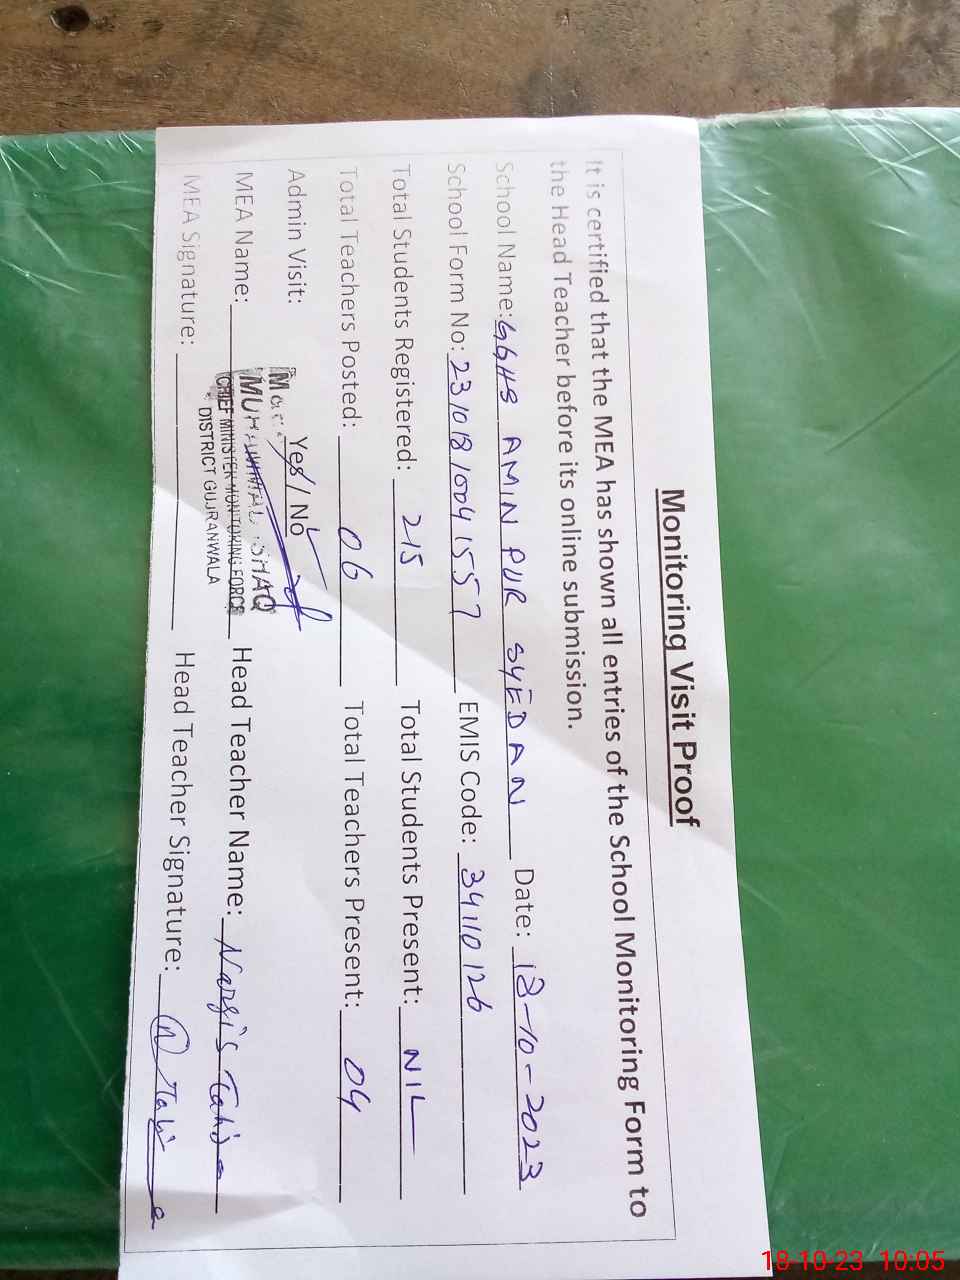 Monitoring Visit Proof
It is certified that the MEA has shown all entries of the School Monitoring Form to
the Head Teacher before its online submission.
School Name: GGHS AMIN PUR SYEDAN Date: 18-10-2023
School Form No: 23101810041557 EMIS Code: 34110126
Total Students Registered: 215 Total Students Present: NIL
Total Teachers Posted: 06 Total Teachers Present: 04
Admin Visit: Yes / No
MEA Name: Head Teacher Name: Nargis Tahira
CHIEF MINISTER MONITORING FORCE
DISTRICT GUJRANWALA
MEA Signature: Head Teacher Signature:
18-10-23 10:05